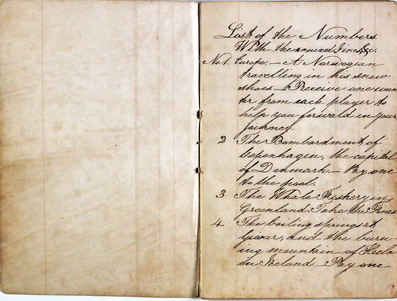 List of the Numbers.
With the annexed Fines &c.
No 1. Europe. — A Norwegian
travelling in his snow
shoes — Receive one coun
ter from each player to
help you forward in your
journey.
2 The Bombardment of
Copenhagen, the capital
of Denmark — Pay one
to the pool.
3 The Whale Fishery in
Greenland Take the Fines
4 The boiling springs at
and the burn
ing mountain of Hecla
in Iceland — Pay one